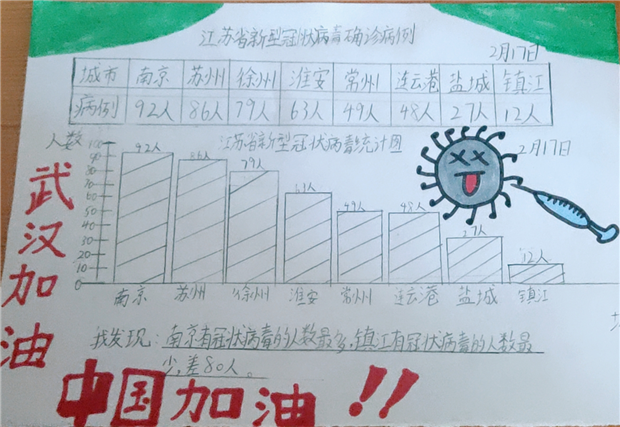 江苏省新型冠状病毒确诊病例
2月17日
城市 南京 苏州 徐州 淮安 常州 连云港 盐城 镇江
病例 92人 86人 79人 63人 49人 48人 27人 12人
人数
江苏省新型冠状病毒统计图
2月17日
100
90
80
70
60
50
40
30
20
10
0
92人 86人 79人 63人 49人 48人 27人 12人
南京 苏州 徐州 淮安 常州 连云港 盐城 镇江
我发现:南京有冠状病毒的人数最多,镇江有冠状病毒的人数最
少,差80人。
武汉加油
中国加油!!